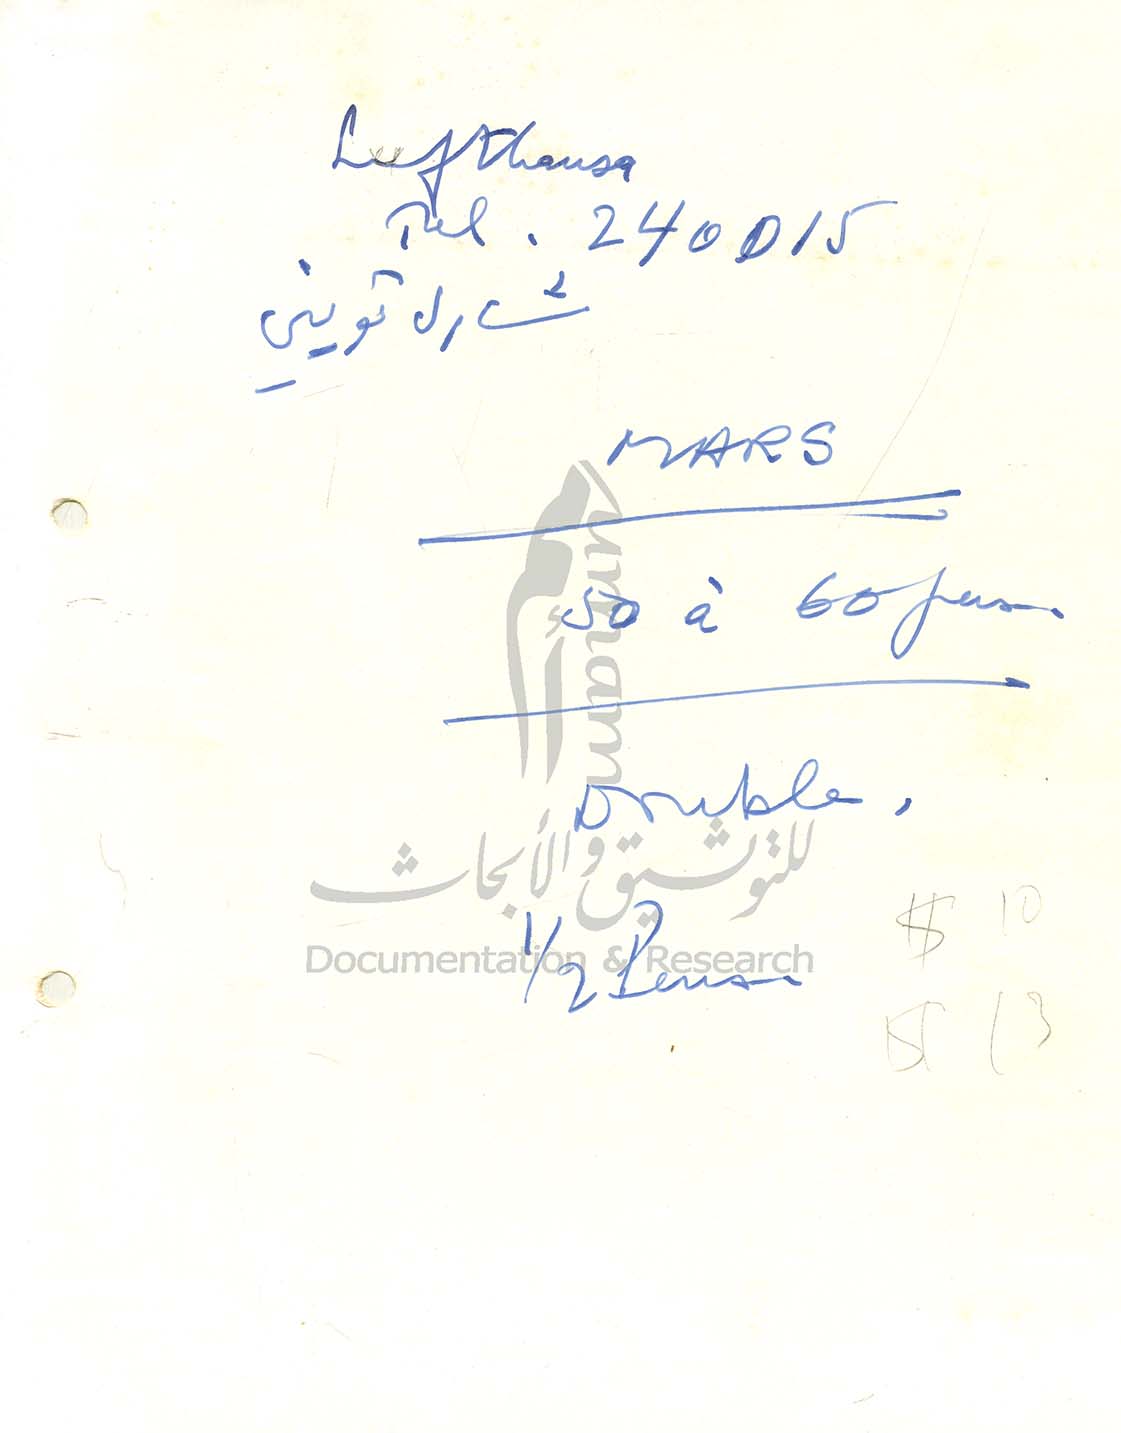 Lufthansa
Tel. 240015
شارل تويني
MARS
50 à 60 pers.
Double.
1/2 Pens.
$ 10
13
umam
أمم
للتوثيق و الأبحاث
Documentation & Research